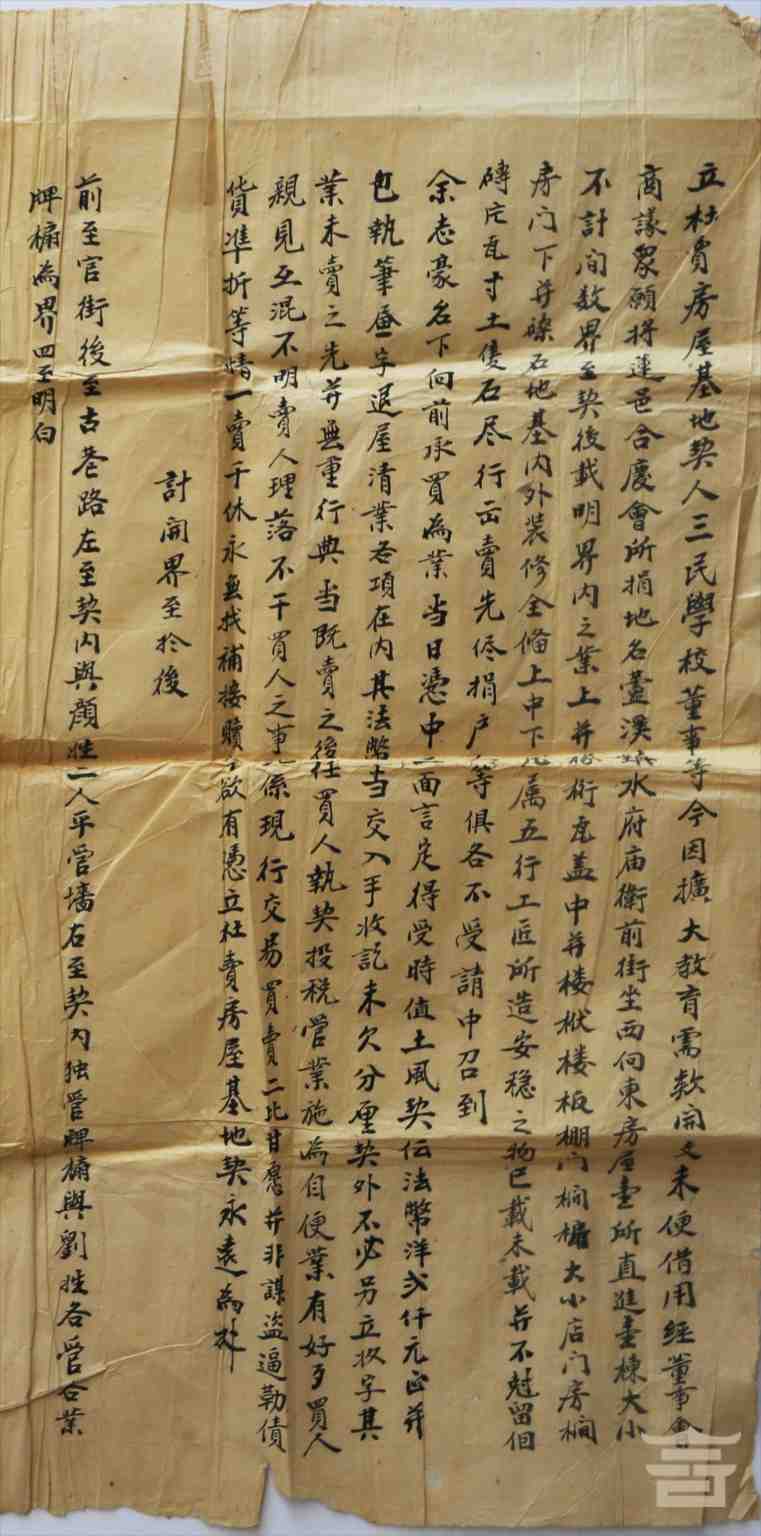 立杜賣房屋基地契人三民學校董事等今因擴大教育需款開支未便借用經董事會
商議眾願將連邑合慶會所捐地名蓋溪水府庙衛前街坐西向東房屋壹所直進壹棟大小
不計间数界至契後載明界内之業上并桁瓦盖中并楼栿楼板棚门槅大小店门房槅
房门下并磉石地基内外装修全俻上中下属五行工匠所造安穏之物已載未載并不尅留佪
磚片瓦寸土隻石尽行出賣先侭捐户等俱各不受請中召到
余志豪名下向前承買為業当日憑中三面言定得受時值土風契価法幣洋弍仟元正并
包執筆畫字退屋清業各項在内其法幣当交入手收訖未欠分厘契外不必另立收字其
業未賣之先并無重行典当既賣之後任買人執契投税管業施為自便業有好歹買人
親見互混不明賣人理落不干買人之事係現行交易買賣二比甘愿并非謀盜逼勒債
貨準折等情一賣千休永無找補接贖欲有憑立杜賣房屋基地契永遠為炤
計開界至於後
前至官街後至古巷路左至契内與顔姓二人平管墻右至契内独管牌樀與劉姓各管合業
牌樀為界四至明白